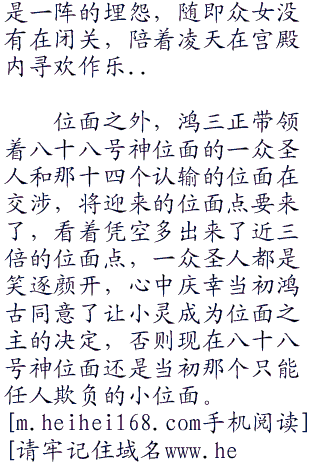 是一阵的埋怨，随即众女没
有在闭关，陪着凌天在宫殿
内寻欢作乐..
位面之外，鸿三正带领
着八十八号神位面的一众圣
人和那十四个认输的位面在
交涉，将迎来的位面点要来
了，看着凭空多出来了近三
倍的位面点，一众圣人都是
笑逐颜开，心中庆幸当初鸿
古同意了让小灵成为位面之
主的决定，否则现在八十八
号神位面还是当初那个只能
任人欺负的小位面。
[m.heihei168.com手机阅读]
[请牢记住域名www.he